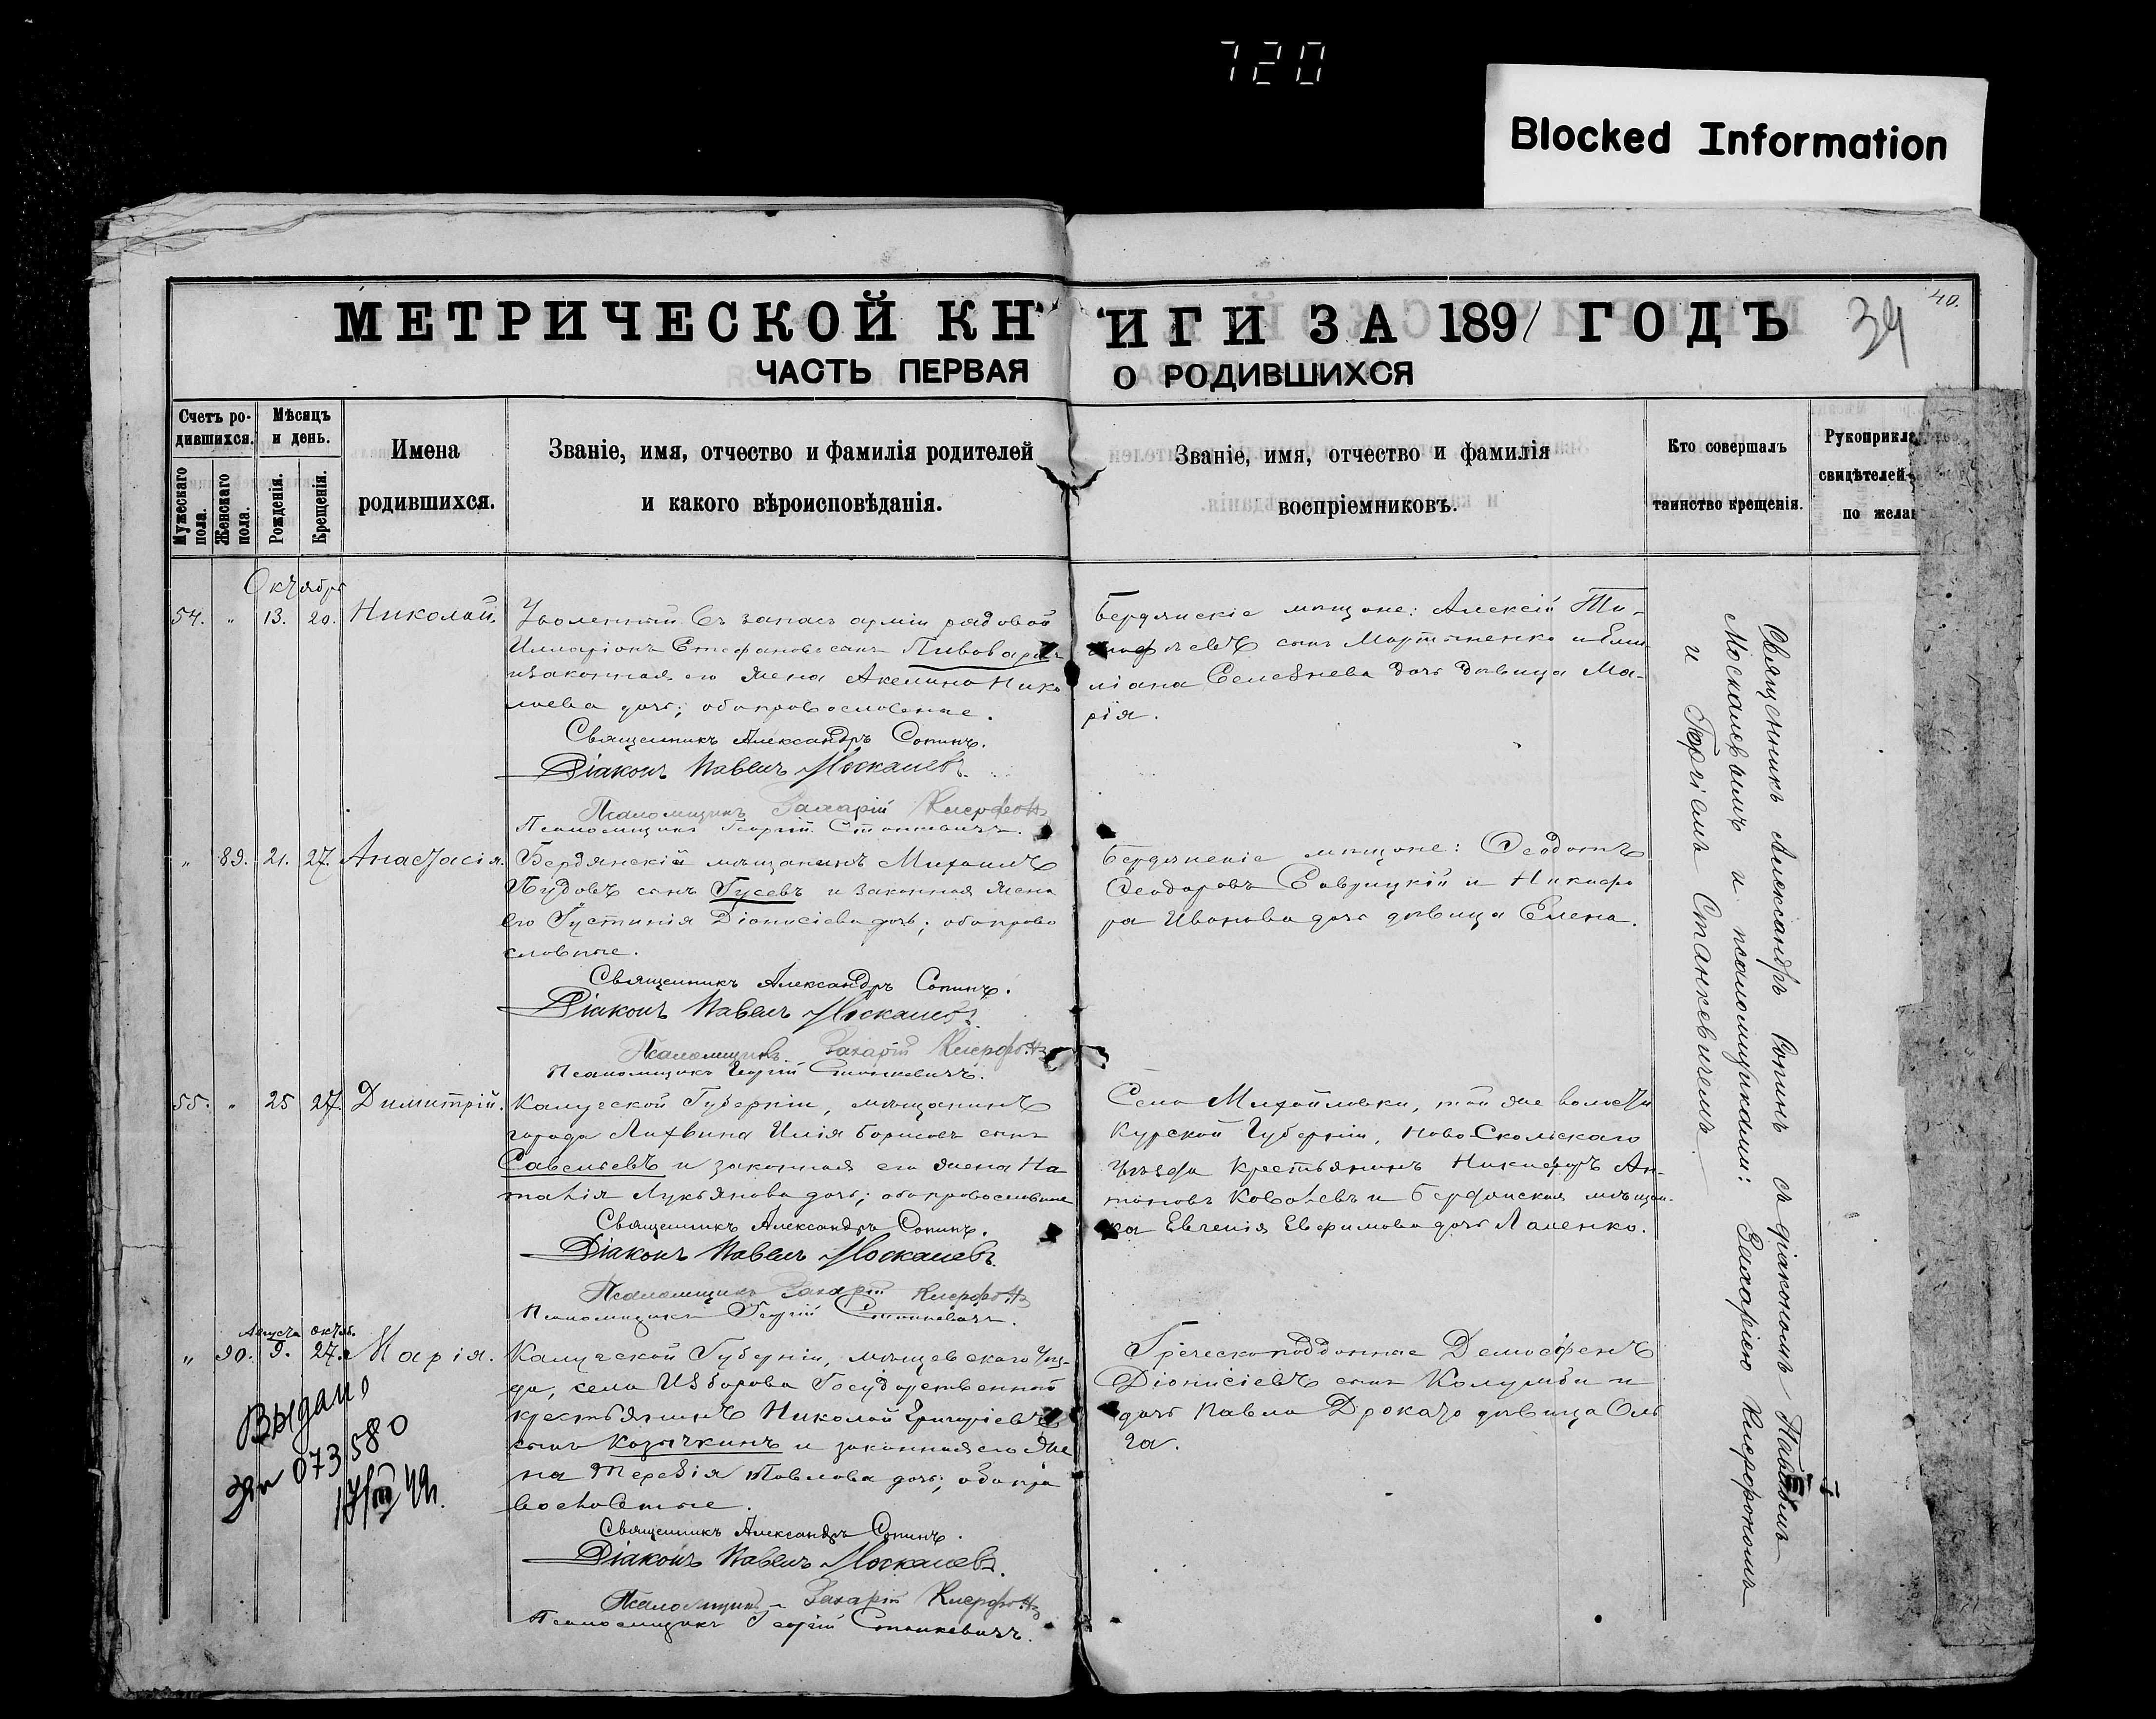 720
Blocked Information
МЕТРИЧЕСКОЙ КН
ИГИ ЗА 1891 ГОДЪ
39
40.
ЧАСТЬ ПЕРВАЯ
О РОДИВШИХСЯ
Счетъ ро-
дившихся.
Мужескаго пола.
Женскаго пола.
Мѣсяцъ
и день.
Рожденія.
Крещенія.
Имена
родившихся.
Званіе, имя, отчество и фамилія родителей
и какого вѣроисповѣданія.
Званіе, имя, отчество и фамилія
воспріемниковъ.
Кто совершалъ
таинство крещенія.
Рукоприкла
свидѣтелей
по жела
Октября
54. " 13. 20. Николай.
Уволенный въ запасъ арміи рядовой
Илларіонъ Стефановъ сынъ Пивоваровъ
и законная его жена Акелина Нико
лаева дочь; оба православные.
Священникъ Александръ Сопинъ.
Діаконъ Павелъ Москалевъ.
Псаломщикъ Захарій Ксерофонтъ
Псаломщикъ Георгій Станкевичъ.
Бердянскіе мѣщане: Алексій Ти-
мофѣевъ сынъ Мартыненко и Еми
ліана Селезнева дочь дѣвица Ма-
рія.
" 89. 21. 27. Анастасія.
Бердянскій мѣщанинъ Михаилъ
Пудовъ сынъ Гусевъ и законная жена
его Густинія Діонисіева дочь; оба право
славные.
Священникъ Александръ Сопинъ.
Діаконъ Павелъ Москалевъ.
Псаломщикъ Захарій Ксерофонтъ
Псаломщикъ Георгій Станкевичъ.
Бердянскіе мѣщане: Ѳеодотъ
Ѳеодоровъ Саврицкій и Никифо
ра Иванова дочь дѣвица Елена.
55. " 25 27. Димитрій.
Калужской Губерніи, мѣщанинъ
города Лихвина Илія Борисовъ сынъ
Савельевъ и законная его жена На
талія Лукьянова дочь; оба православные
Священникъ Александръ Сопинъ.
Діаконъ Павелъ Москалевъ.
Псаломщикъ Захарій Ксерофонтъ
Псаломщикъ Георгій Станкевичъ.
Села Михайловки, той же волости
Курской Губерніи, Ново-Скольскаго
Уѣзда крестьянинъ Никифоръ Ан-
тоновъ Ковалевъ и Бердянская мѣщан-
ка Евгенія Евфимова дочь Лапенко.
Августа октяб.
" 90. 9. 27. Марія.
Калужской Губерніи, мѣщевскаго Уѣз-
да, села Изборова Государственный
крестьянинъ Николай Григоріевъ
сынъ Козычкинъ и законная его же
на Терезія Павлова дочь; оба пра
вославные.
Священникъ Александръ Сопинъ.
Діаконъ Павелъ Москалевъ.
Псаломщикъ Захарій Ксерофонтъ
Псаломщикъ Георгій Станкевичъ.
Греческоподданные Демосѳенъ
Діонисіевъ сынъ Колумби и
дочь Павла Дрокато дѣвица Оль
га.
Выдано
073580
17/III 49.
Священникъ Александръ Сопинъ съ діакономъ Павломъ
Москалевымъ и псаломщиками: Захаріею Ксерофономъ
и Георгіемъ Станкевичемъ.